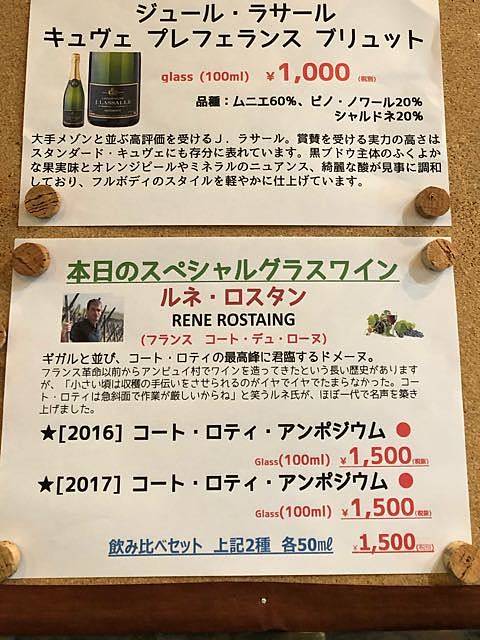 ジュール・ラサール
キュヴェ プレフェランス ブリュット
glass (100ml) ￥1,000 (税別)
品種：ムニエ60%、ピノ・ノワール20%
シャルドネ20%
J.LASSALLE
大手メゾンと並ぶ高評価を受けるJ．ラサール。賞賛を受ける実力の高さは
スタンダード・キュヴェにも存分に表れています。黒ブドウ主体のふくよか
な果実味とオレンジピールやミネラルのニュアンス、綺麗な酸が見事に調和
しており、フルボディのスタイルを軽やかに仕上げています。
本日のスペシャルグラスワイン
ルネ・ロスタン
RENE ROSTAING
(フランス コート・デュ・ローヌ)
ギガルと並び、コート・ロティの最高峰に君臨するドメーヌ。
フランス革命以前からアンピュイ村でワインを造ってきたという長い歴史があります
が、「小さい頃は収穫の手伝いをさせられるのがイヤでイヤでたまらなかった。コー
ト・ロティは急斜面で作業が厳しいからね」と笑うルネ氏が、ほぼ一代で名声を築き
上げました。
★[2016] コート・ロティ・アンポジウム ●
Glass(100ml) ￥1,500 (税抜)
★[2017] コート・ロティ・アンポジウム ●
Glass(100ml) ￥1,500 (税抜)
飲み比べセット 上記2種 各50㎖ ￥1,500